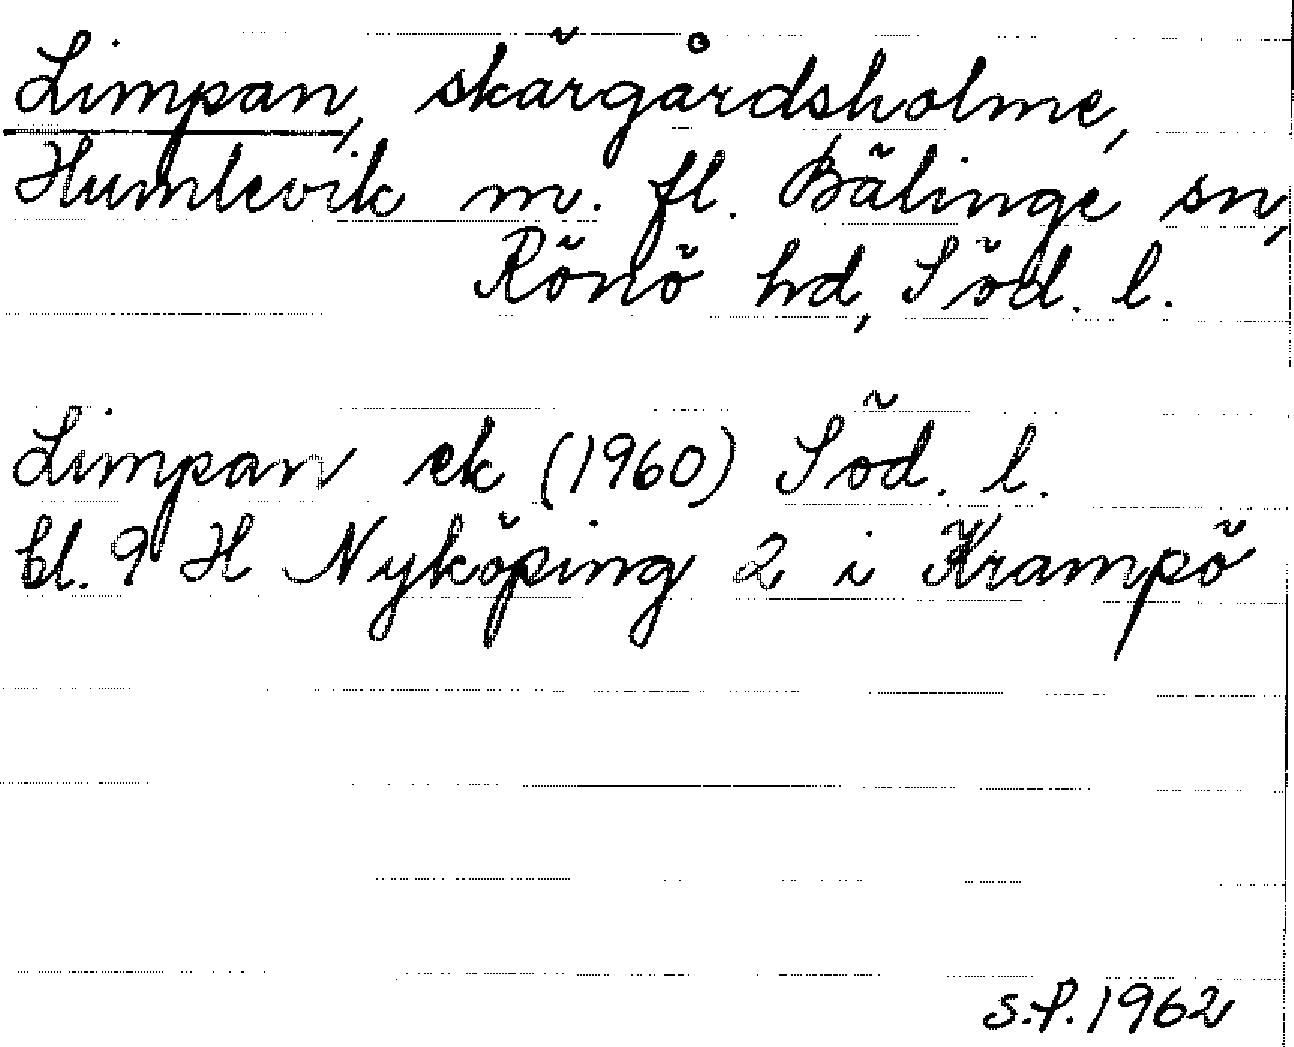 Limpan, skärgårdsholme,
Humlevik m. fl. Bälinge sn,
Rönö hd, Söd. l.
Limpan ek (1960) Söd. l.
bl. 9 H Nyköping 2 i Krampö
S.P. 1962